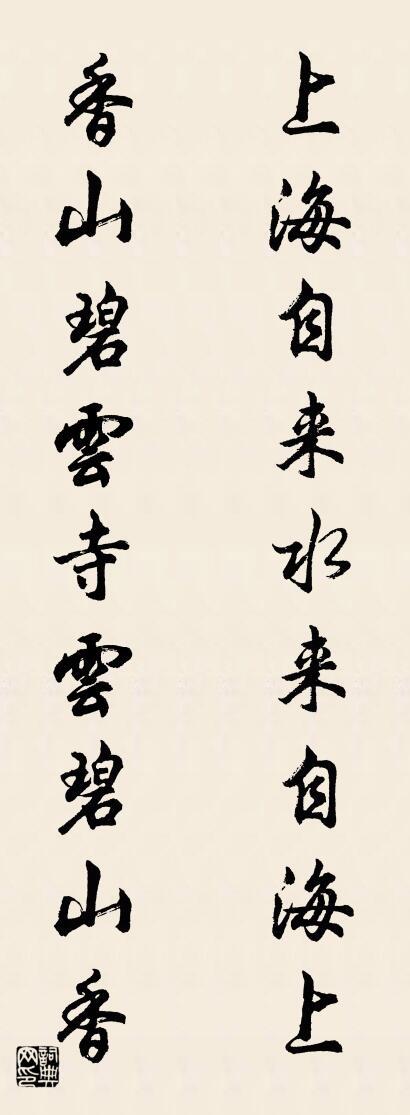 上海自来水来自海上
香山碧雲寺雲碧山香
詞典
网印